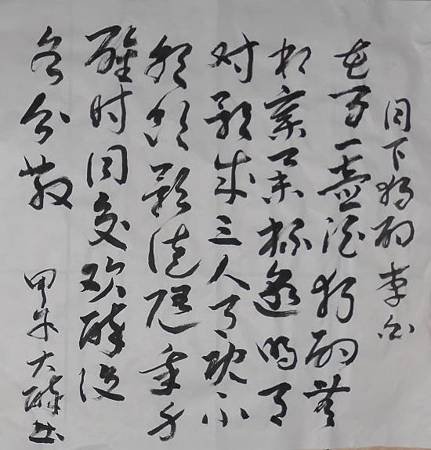 月下独酌 李白
花间一壶酒独酌无
相亲举杯邀明月
对影成三人月既不
解饮影徒随我身
醒时同交欢醉后
各分散
甲午大